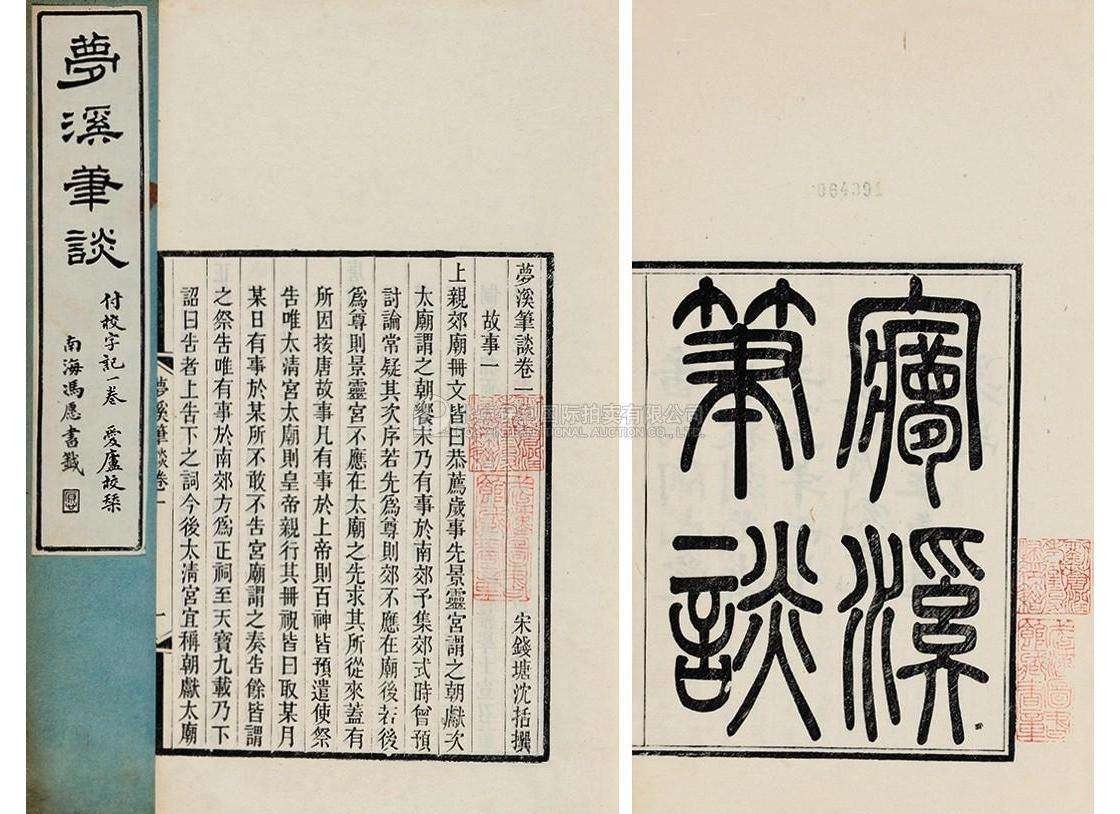 夢溪筆談
付校字記一卷 愛廬校栞
南海馮愿書籤
夢溪筆談卷一 宋錢塘沈括撰
故事一
上親郊廟冊文皆曰恭薦歲事先景靈宮謂之朝獻次
太廟謂之朝饗末乃有事於南郊予集郊式時曾預
討論常疑其次序若先爲尊則郊不應在廟後若後
爲尊則景靈宮不應在太廟之先求其所從來蓋有
所因按唐故事凡有事於上帝則百神皆預遣使祭
告唯太清宮太廟則皇帝親行其冊祝皆曰取某月
某日有事於某所不敢不告宮廟謂之奏告餘皆謂
之祭告唯有事於南郊方爲正祠至天寶九載乃下
詔曰告者上告下之詞今後太清宮宜稱朝獻太廟
夢溪筆談卷一
一
㝱溪
筆談
国际拍卖有限公司
AUCTION CO., LTD.